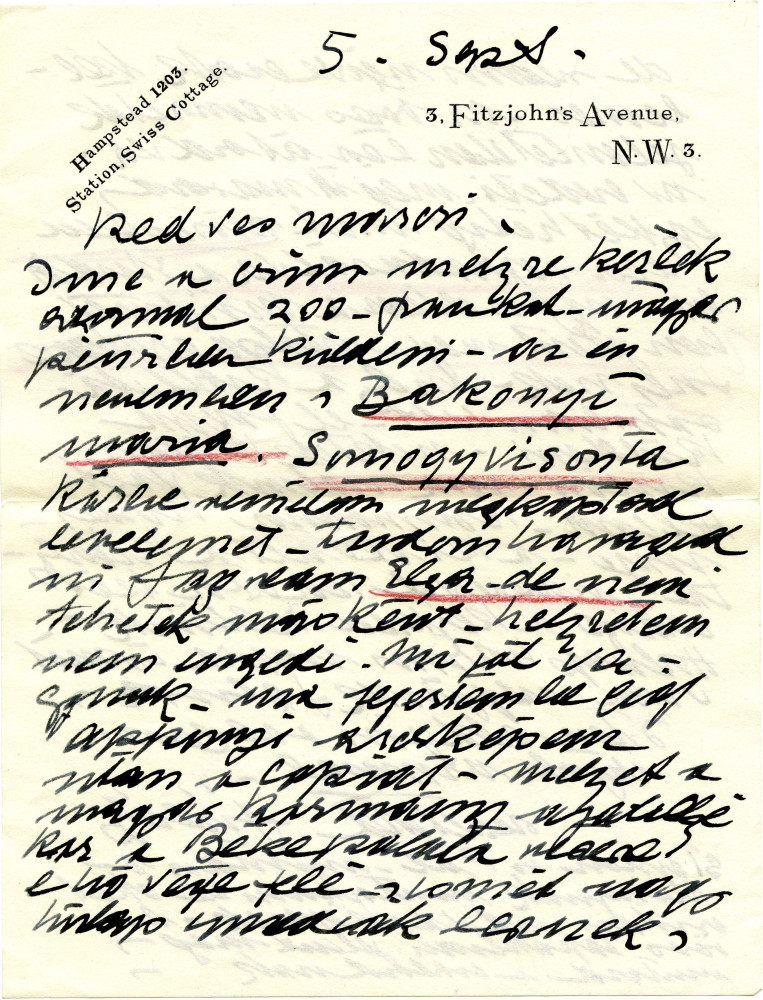 5. Sept.
Hampstead 1203.
Station, Swiss Cottage.
3, Fitzjohn's Avenue,
N.W. 3.
Kedves Marcsi,
Ime a cím melyre kérlek
azonnal 200 - magyar
pénzben küldeni - az én
nevemben, Bakonyi
Mária. Somogyvisonta
Kézbe remélem megkaptad
levelemet - tudom haragud
ni fog reám Elza - de nem
tehetek másként - helyzetem
nem engedi. Mi jól va-
gyunk - ma fejeztem be gróf
Apponyi arcképem
után a copiát - melyet a
magyar kormány ajándé
koz a Béke palota részére
e hó vége felé - nagy
lesznek,